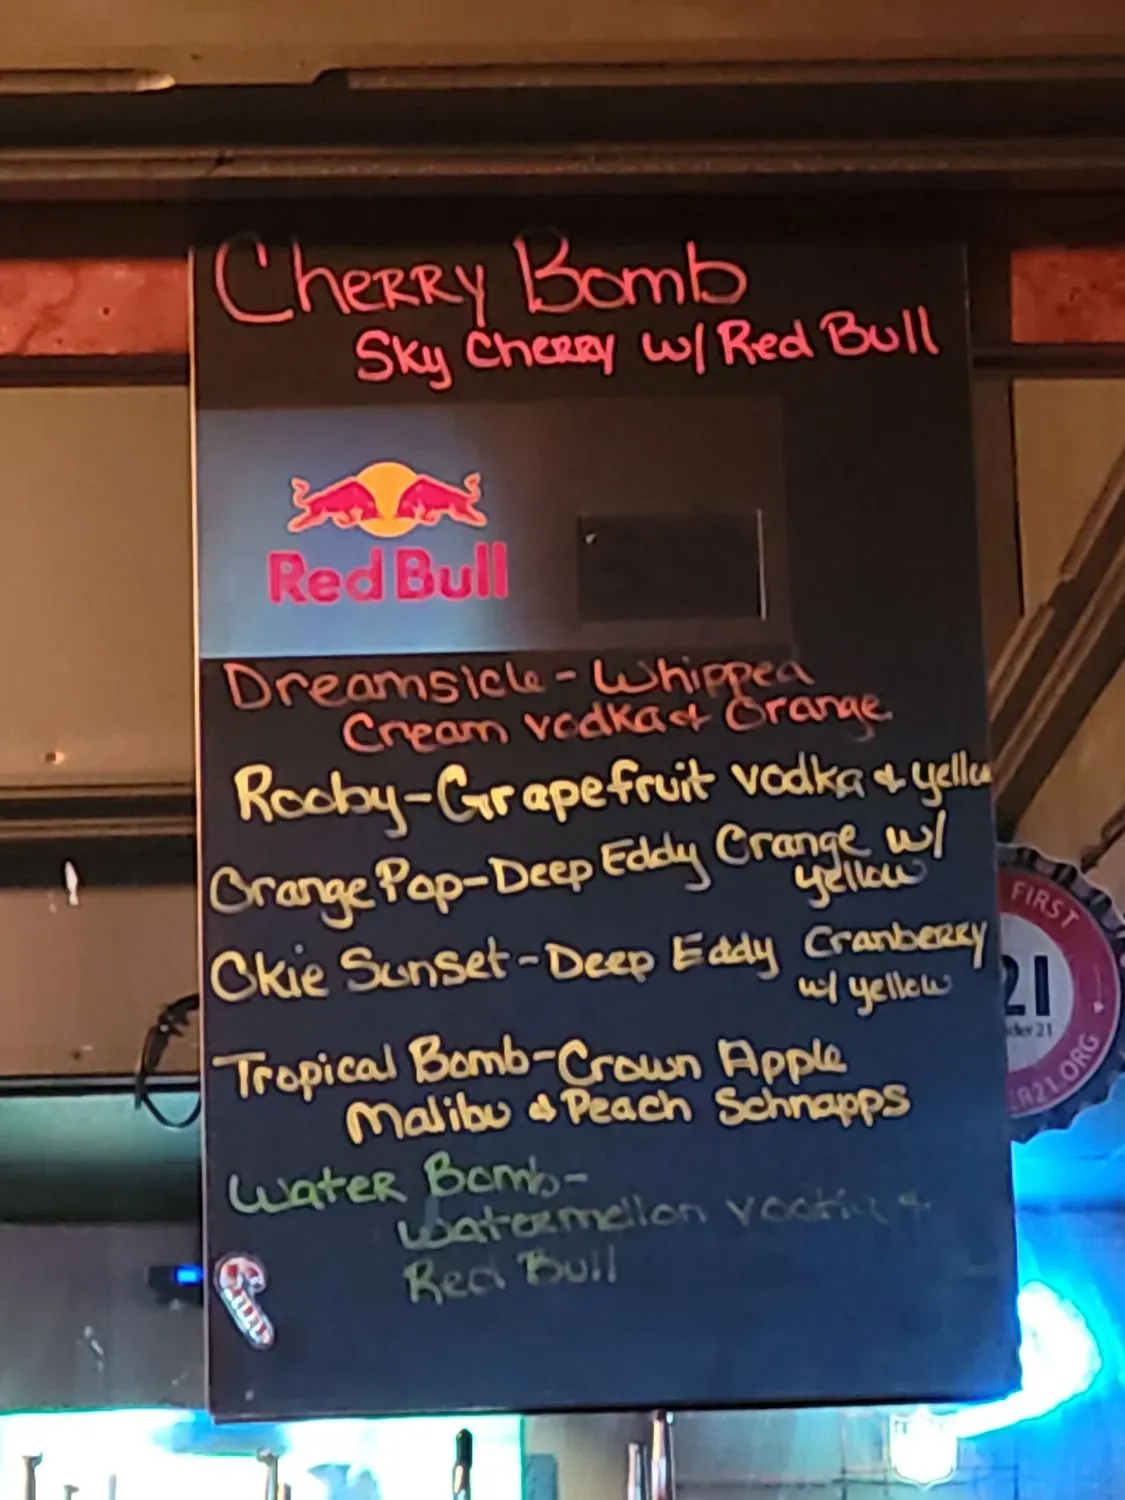 Cherry Bomb
Sky Cherry w/ Red Bull
Red Bull
Dreamsicle - Whipped
Cream vodka & Orange
Rooby - Grapefruit vodka & yellow
Orange Pop - Deep Eddy Orange w/
yellow
Okie Sunset - Deep Eddy Cranberry
w/ yellow
Tropical Bomb - Crown Apple
Malibu & Peach Schnapps
Water Bomb -
Watermellon vodka &
Red Bull
FIRST
21
NFL